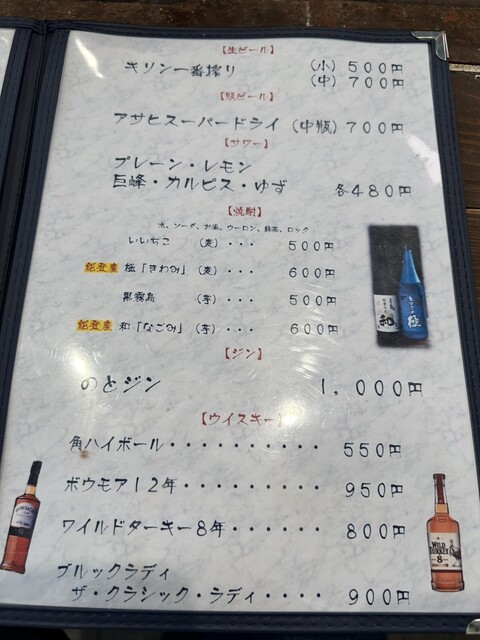 【生ビール】
キリン一番搾り （小）500円
（中）700円
【瓶ビール】
アサヒスーパードライ（中瓶）700円
【サワー】
プレーン・レモン
巨峰・カルピス・ゆず 各480円
【焼酎】
水、ソーダ、お湯、ウーロン、緑茶、ロック
いいちこ （麦）・・・ 500円
能登産 極「きわみ」（麦）・・・ 600円
黒霧島 （芋）・・・ 500円
能登産 和「なごみ」（芋）・・・ 600円
和
極
【ジン】
のとジン 1，000円
【ウイスキー】
角ハイボール・・・・・・・・・・ 550円
ボウモア12年・・・・・・・・・ 950円
ワイルドターキー8年・・・・・・ 800円
WILD TURKEY
8
ブルックラディ
ザ・クラシック・ラディ・・・・ 900円